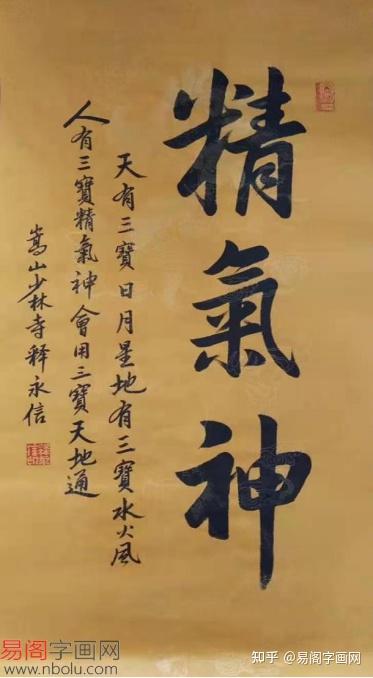 精氣神
天有三寶日月星地有三寶水火風
人有三寶精氣神會用三寶天地通
嵩山少林寺释永信
易阁字画网
www.nbolu.com
知乎 @易阁字画网